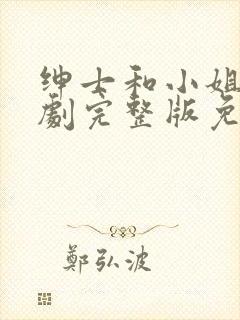 绅士和小姐
劇完整版免
鄭弘波